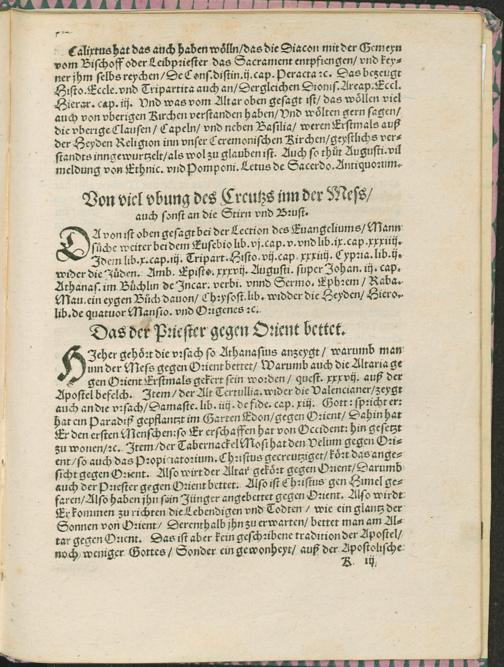 Calixtus hat das auch haben wölln/das die Diacon mit der Gemeyn
vom Bischoff oder Leibpriester das Sacrament empfiengen/ vnd key-
ner ihm selbs reychen/ De Cons.distin.ij.cap. Peracta ꝛc. Das bezeugt
Histo. Eccle. vnd Tripartita auch an/Dergleichen Dionis. Areap. Eccl.
Hierar. cap. iij. Vnd was vom Altar oben gesagt ist/das wöllen viel
auch von vberigen Kirchen verstanden haben/ Vnd wölten gern sagen/
die vberige Clausen/ Capeln/ vnd neben Basilia/ weren Erstmals auß
der Heyden Religion inn vnser Ceremonischen Kirchen/geystlichs ver-
standts inngewurtzelt/als wol zu glauben ist. Auch so thůt Augusti.vil
meldung von Ethnic. vnd Pomponi. Letus de Sacerdo. Antiquorum.
Von viel vbung des Creutzs inn der Mess/
auch sonst an die Stirn vnd Brust.
DAvon ist oben gesagt bei der Lection des Euangeliums/ Mann
sůche weiter bei dem Eusebio lib.vj.cap.v.vnd lib.ix.cap.xxxiiij.
Idem lib.x.cap.iij. Tripart. Histo.vij.cap.xxxiiij. Cypria. lib.ij.
wider die Jüden. Amb. Episto.xxxvij. Augusti. super Johan. ij. cap.
Athanas. im Büchlin de Incar. verbi. vnnd Sermo. Ephrem/ Raba.
Mau.ein eygen Bůch dauon/ Chrysost.lib. widder die Heyden/ Hiero.
lib.de quatuor Mansio. vnd Origenes ꝛc.
Das der Priester gegen Orient bettet.
HIeher gehört die vrsach so Athanasius anzeygt/ warumb man
inn der Mess gegen Orient bettet/ Warumb auch die Altaria ge
gen Orient Erstmals gekert sein worden/ quest. xxxvij. auß der
Apostel befelch. Item/ der Alt Tertullia.wider die Valencianer/zeygt
auch an die vrsach/Damaste. lib. iiij.de fide. cap. xiij. Gott: spricht er:
hat ein Paradiß gepflantzt im Garten Edon/gegen Orient/ Dahin hat
Er den ersten Menschen:so Er erschaffen hat von Occident: hin gesetzt
zu wonen/ꝛc. Item/der Tabernackel Mosi hat den Velum gegen Ori-
ent/so auch das Propitiatorium. Christus gecreutziget/ kört das ange-
sicht gegen Orient. Also wirt der Altar gekört gegen Orient/Darumb
auch der Priester gegen Orient bettet. Also ist Christus gen Himel ge-
faren/Also haben jhn sein Jünger angebettet gegen Orient. Also wirdt
Er kommen zu richten die Lebendigen vnd Todten/ wie ein glantz der
Sonnen von Orient/ Derenthalb jhn zu erwarten/ bettet man am Al-
tar gegen Orient. Das ist aber kein geschribene tradition der Apostel/
noch weniger Gottes/ Sonder ein gewonheyt/ auß der Apostolische
K iij